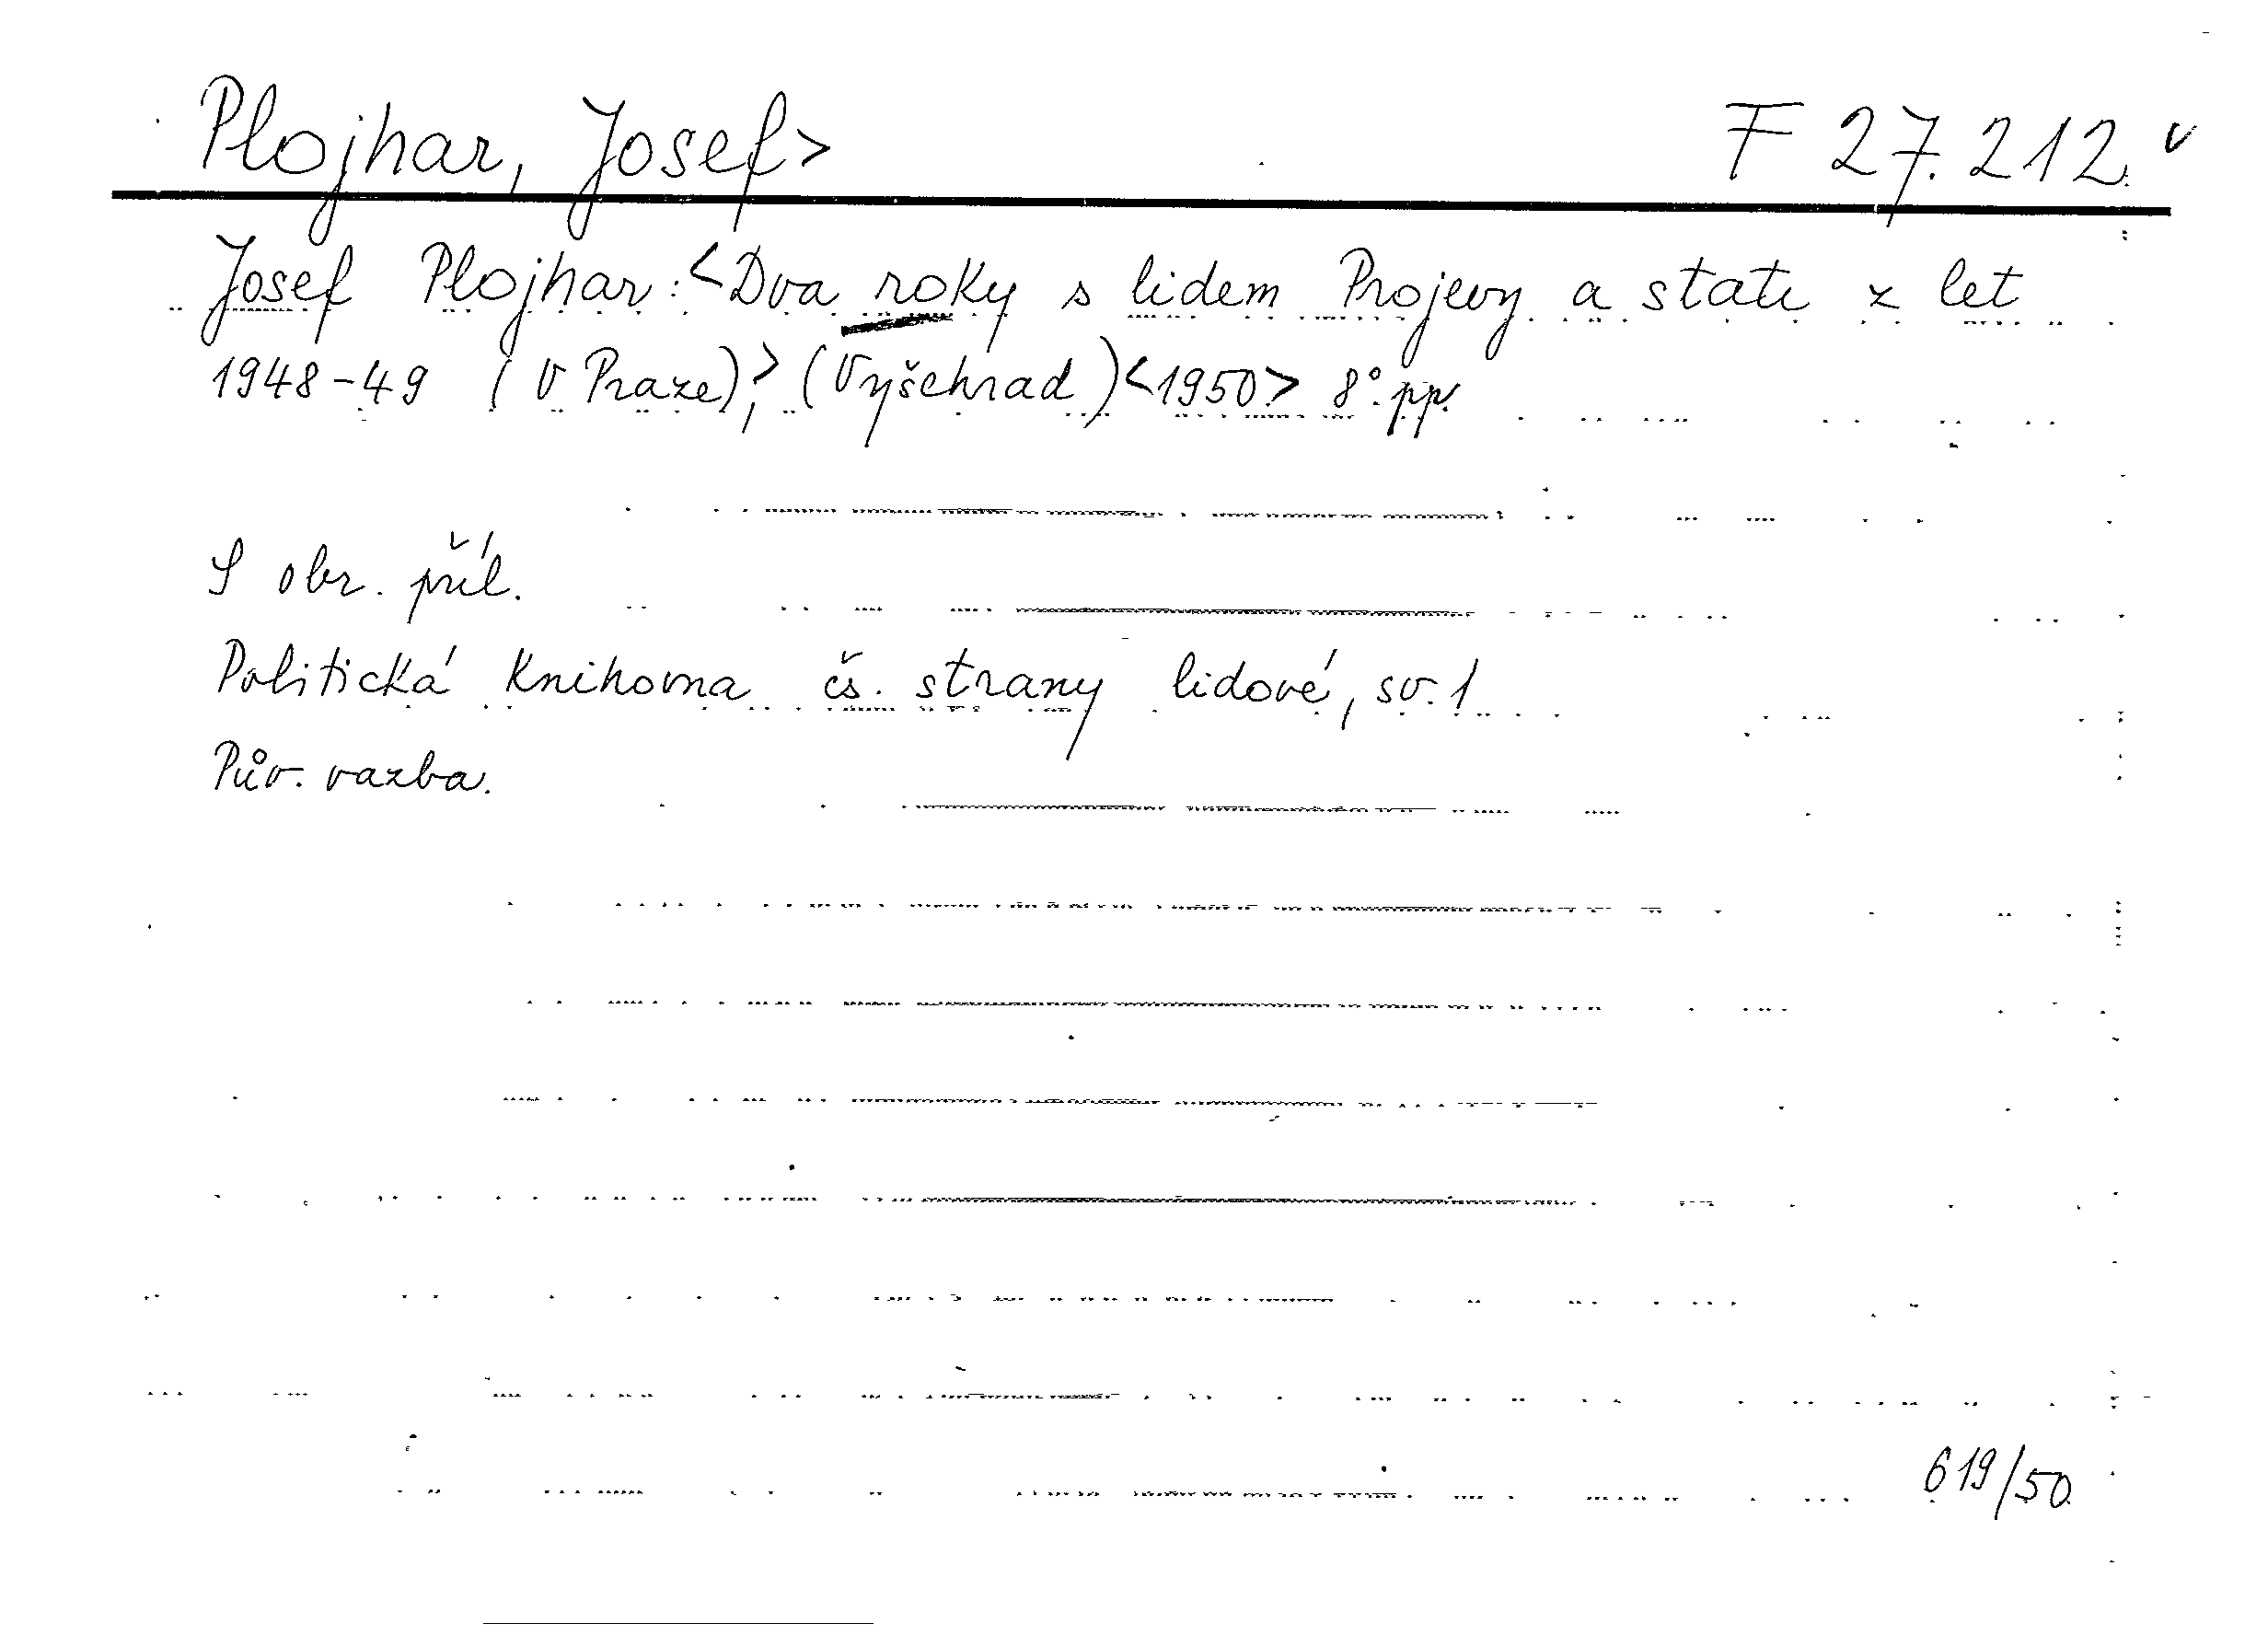 Plojhar, Josef> F 27.212. v
Josef Plojhar: <Dva roky s lidem Projevy a stati z let
1948-49 (V Praze)>, (Vyšehrad) <1950> 8°. pp.
S obr. příl.
Politická knihovna čs. strany lidové, sv. 1
Pův. vazba.
619/50